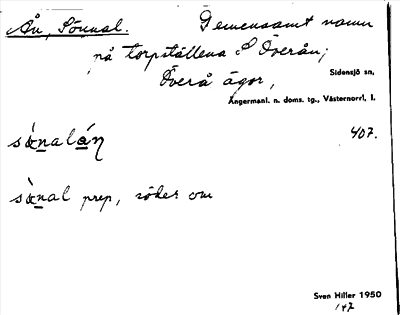 Ån, Sönnal. Gemensamt namn
på torpställena S Överån,
Överå ägor,
Sidensjö sn,
Ångermanl. n. doms. tg., Västernorrl. l.
407.
sǿ̀nalán
sǿ̀nal prep, söder om
Sven Hiller 1950
147